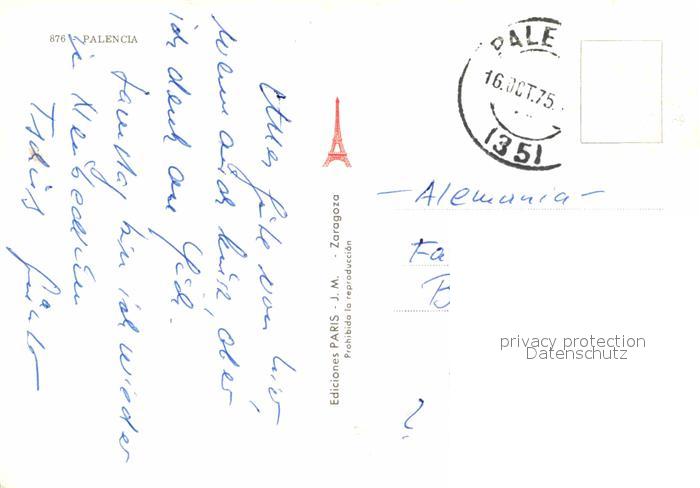 876 - PALENCIA
Alles Gute von hier,
wenn auch kurz, aber
ich denk an Sie.
Samstag bin ich wieder
in
Tschüß Günter
Ediciones PARIS - J. M. - Zaragoza
Prohibida la reproducción
PALE
16.OCT.75.
(35)
- Alemania -
Fa
B
privacy protection
Datenschutz